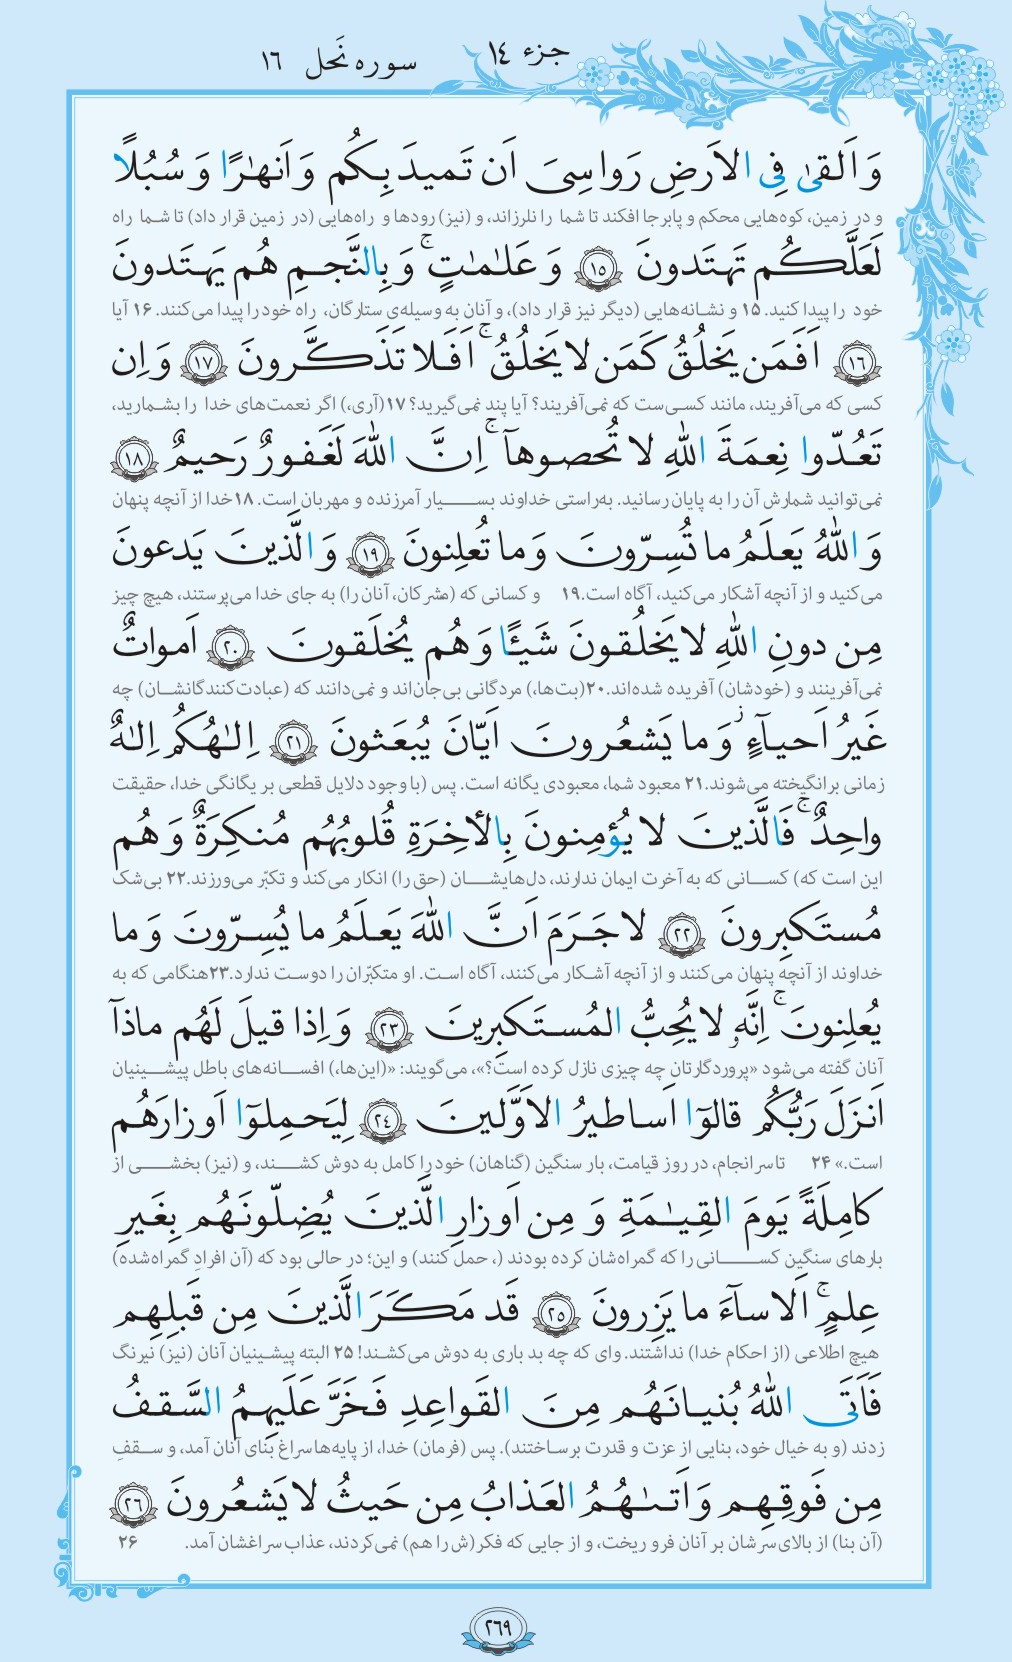 جزء ١٤
سوره نَحل ١٦
وَ اَلقىٰ فِی الاَرضِ رَواسِیَ اَن تَمیدَ بِكُم وَ اَنهٰرًا وَ سُبُلًا
و در زمین، کوه‌هایی محکم و پابرجا افکند تا شما را نلرزاند، و (نیز) رودها و راه‌هایی (در زمین قرار داد) تا شما راه
لَعَلَّكُم تَهتَدونَ ١٥ وَ عَلٰمٰتٍ ۚ وَ بِالنَّجمِ هُم یَهتَدونَ
خود را پیدا کنید. ۱۵ و نشانه‌هایی (دیگر نیز قرار داد)، و آنان به وسیله‌ی ستارگان، راه خود را پیدا می‌کنند. ۱۶ آیا
١٦ اَفَمَن یَخلُقُ كَمَن لا یَخلُقُ ۚ اَفَلا تَذَكَّرونَ ١٧ وَ اِن
کسی که می‌آفریند، مانند کسی‌ست که نمی‌آفریند؟ آیا پند نمی‌گیرید؟ ۱۷ (آری،) اگر نعمت‌های خدا را بشمارید،
تَعُدّوا نِعمَةَ اللّٰهِ لا تُحصوهآ ۚ اِنَّ اللّٰهَ لَغَفورٌ رَحیمٌ ١٨
نمی‌توانید شمارش آن را به پایان رسانید. به‌راستی خداوند بسیار آمرزنده و مهربان است. ۱۸ خدا از آنچه پنهان
وَ اللّٰهُ یَعلَمُ ما تُسِرّونَ وَ ما تُعلِنونَ ١٩ وَ الَّذینَ یَدعونَ
می‌کنید و از آنچه آشکار می‌کنید، آگاه است. ۱۹ و کسانی که (مشرکان، آنان را) به جای خدا می‌پرستند، هیچ چیز
مِن دونِ اللّٰهِ لا یَخلُقونَ شَیـًٔا وَ هُم یُخلَقونَ ٢٠ اَمواتٌ
نمی‌آفرینند و (خودشان) آفریده شده‌اند. ۲۰ (بت‌ها،) مردگانی بی‌جان‌اند و نمی‌دانند که (عبادت‌کنندگانشان) چه
غَیرُ اَحیآءٍ ز وَ ما یَشعُرونَ اَیّانَ یُبعَثونَ ٢١ اِلٰهُكُم اِلٰهٌ
زمانی برانگیخته می‌شوند. ۲۱ معبود شما، معبودی یگانه است. پس (با وجود دلایل قطعی بر یگانگی خدا، حقیقت
واحِدٌ ۚ فَالَّذینَ لا یُؤمِنونَ بِالأخِرَةِ قُلوبُهُم مُنكِرَةٌ وَ هُم
این است که) کسانی که به آخرت ایمان ندارند، دل‌هایشان (حق را) انکار می‌کند و تکبّر می‌ورزند. ۲۲ بی‌شک
مُستَكبِرونَ ٢٢ لا جَرَمَ اَنَّ اللّٰهَ یَعلَمُ ما یُسِرّونَ وَ ما
خداوند از آنچه پنهان می‌کنند و از آنچه آشکار می‌کنند، آگاه است. او متکبّران را دوست ندارد. ۲۳ هنگامی که به
یُعلِنونَ ۚ اِنَّهٗ لا یُحِبُّ المُستَكبِرینَ ٢٣ وَ اِذا قیلَ لَهُم ماذآ
آنان گفته می‌شود «پروردگارتان چه چیزی نازل کرده است؟»، می‌گویند: «(این‌ها،) افسانه‌های باطل پیشینیان
اَنزَلَ رَبُّكُم قالوٓا اَساطیرُ الاَوَّلینَ ٢٤ لِیَحمِلوٓا اَوزارَهُم
است.» ۲۴ تا سرانجام، در روز قیامت، بار سنگین (گناهان) خود را کامل به دوش کشند، و (نیز) بخشی از
كامِلَةً یَومَ القِیٰمَةِ وَ مِن اَوزارِ الَّذینَ یُضِلّونَهُم بِغَیرِ
بارهای سنگین کسانی را که گمراه‌شان کرده بودند (، حمل کنند) و این؛ در حالی بود که (آن افرادِ گمراه‌شده)
عِلمٍ ۚ اَلا سآءَ ما یَزِرونَ ٢٥ قَد مَكَرَ الَّذینَ مِن قَبلِهِم
هیچ اطلاعی (از احکام خدا) نداشتند. وای که چه بد باری به دوش می‌کشند! ۲۵ البته پیشینیان آنان (نیز) نیرنگ
فَاَتَی اللّٰهُ بُنیانَهُم مِنَ القَواعِدِ فَخَرَّ عَلَیهِمُ السَّقفُ
زدند (و به خیال خود، بنایی از عزت و قدرت برساختند). پس (فرمان) خدا، از پایه‌ها سراغ بنای آنان آمد، و سقفِ
مِن فَوقِهِم وَ اَتىٰهُمُ العَذابُ مِن حَیثُ لا یَشعُرونَ ٢٦
(آن بنا) از بالای سرشان بر آنان فرو ریخت، و از جایی که فکر(ش را هم) نمی‌کردند، عذاب سراغشان آمد. ۲۶
٢٦٩